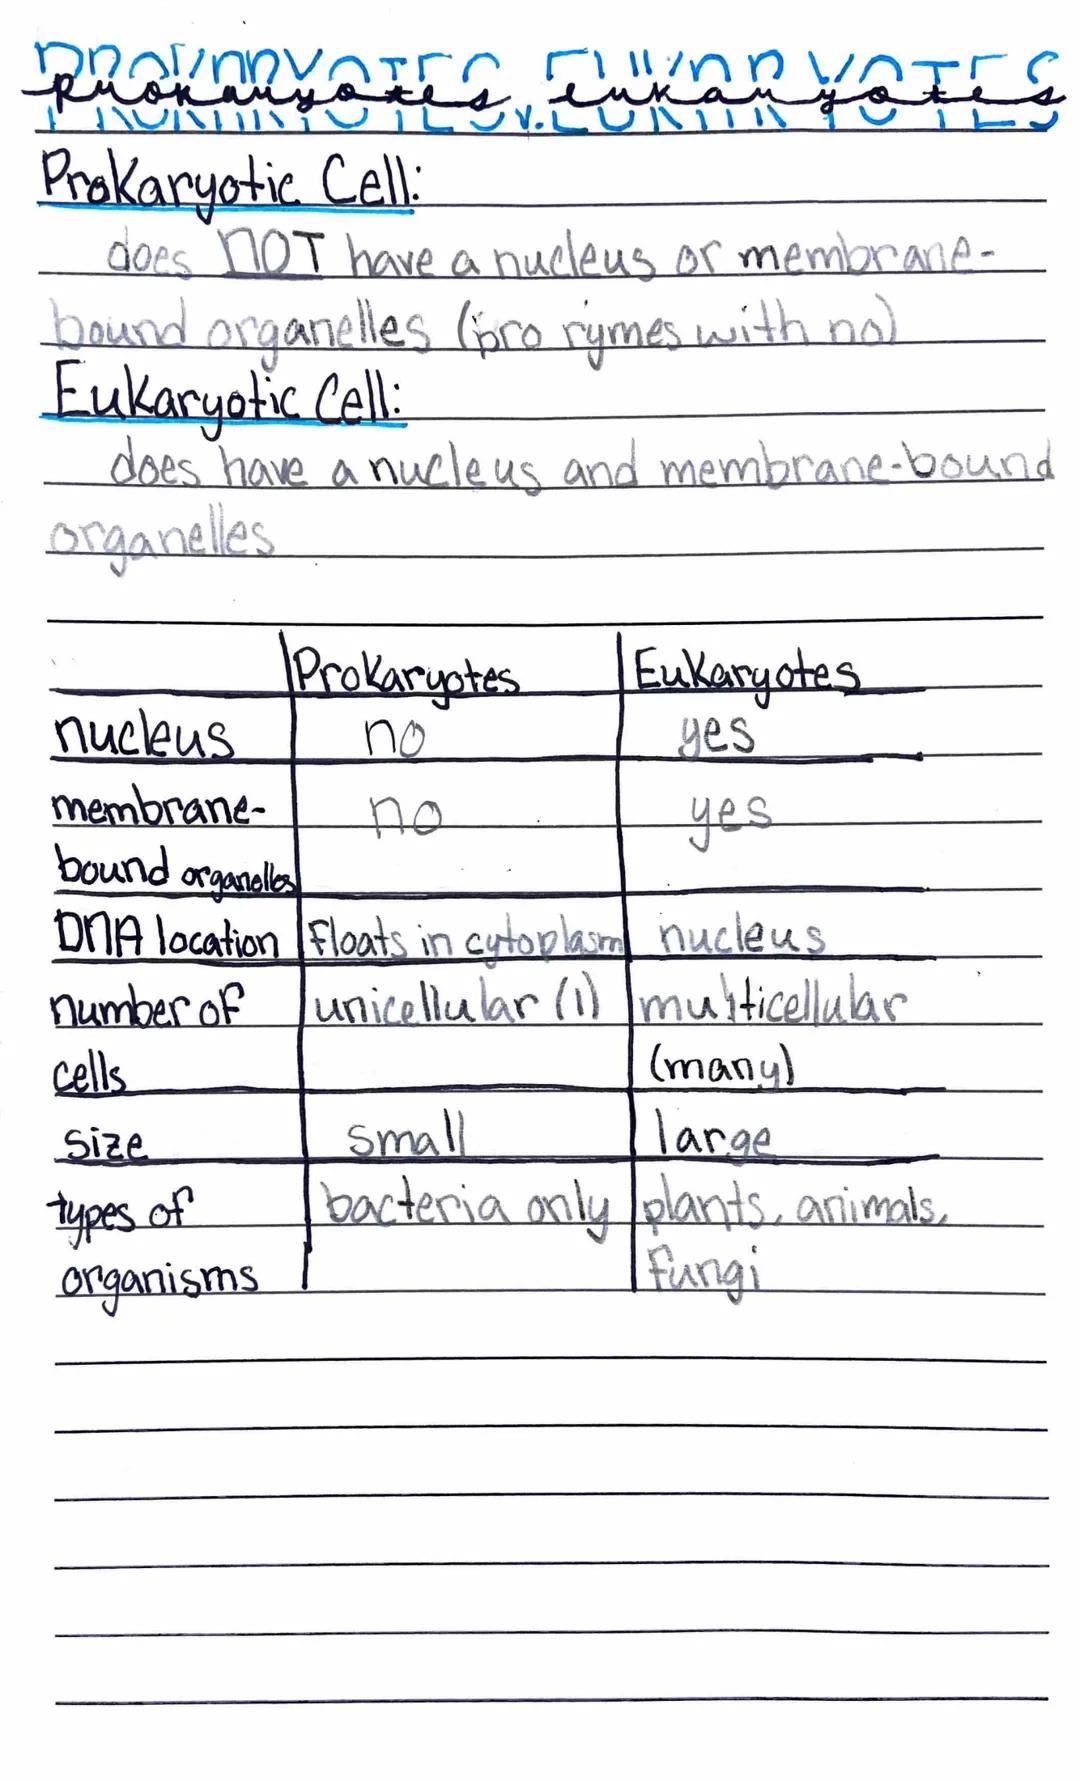 PROKARYOTES v. EUKARYOTES
prokaryotes eukaryotes
Prokaryotic Cell:
does NOT have a nucleus or membrane-
bound organelles (pro rymes with no)
Eukaryotic Cell:
does have a nucleus and membrane-bound
organelles
Prokaryotes Eukaryotes
nucleus no yes
membrane- no yes
bound organelles
DNA location Floats in cytoplasm nucleus
number of unicellular (1) multicellular
cells (many)
size small large
types of bacteria only plants, animals,
organisms Fungi